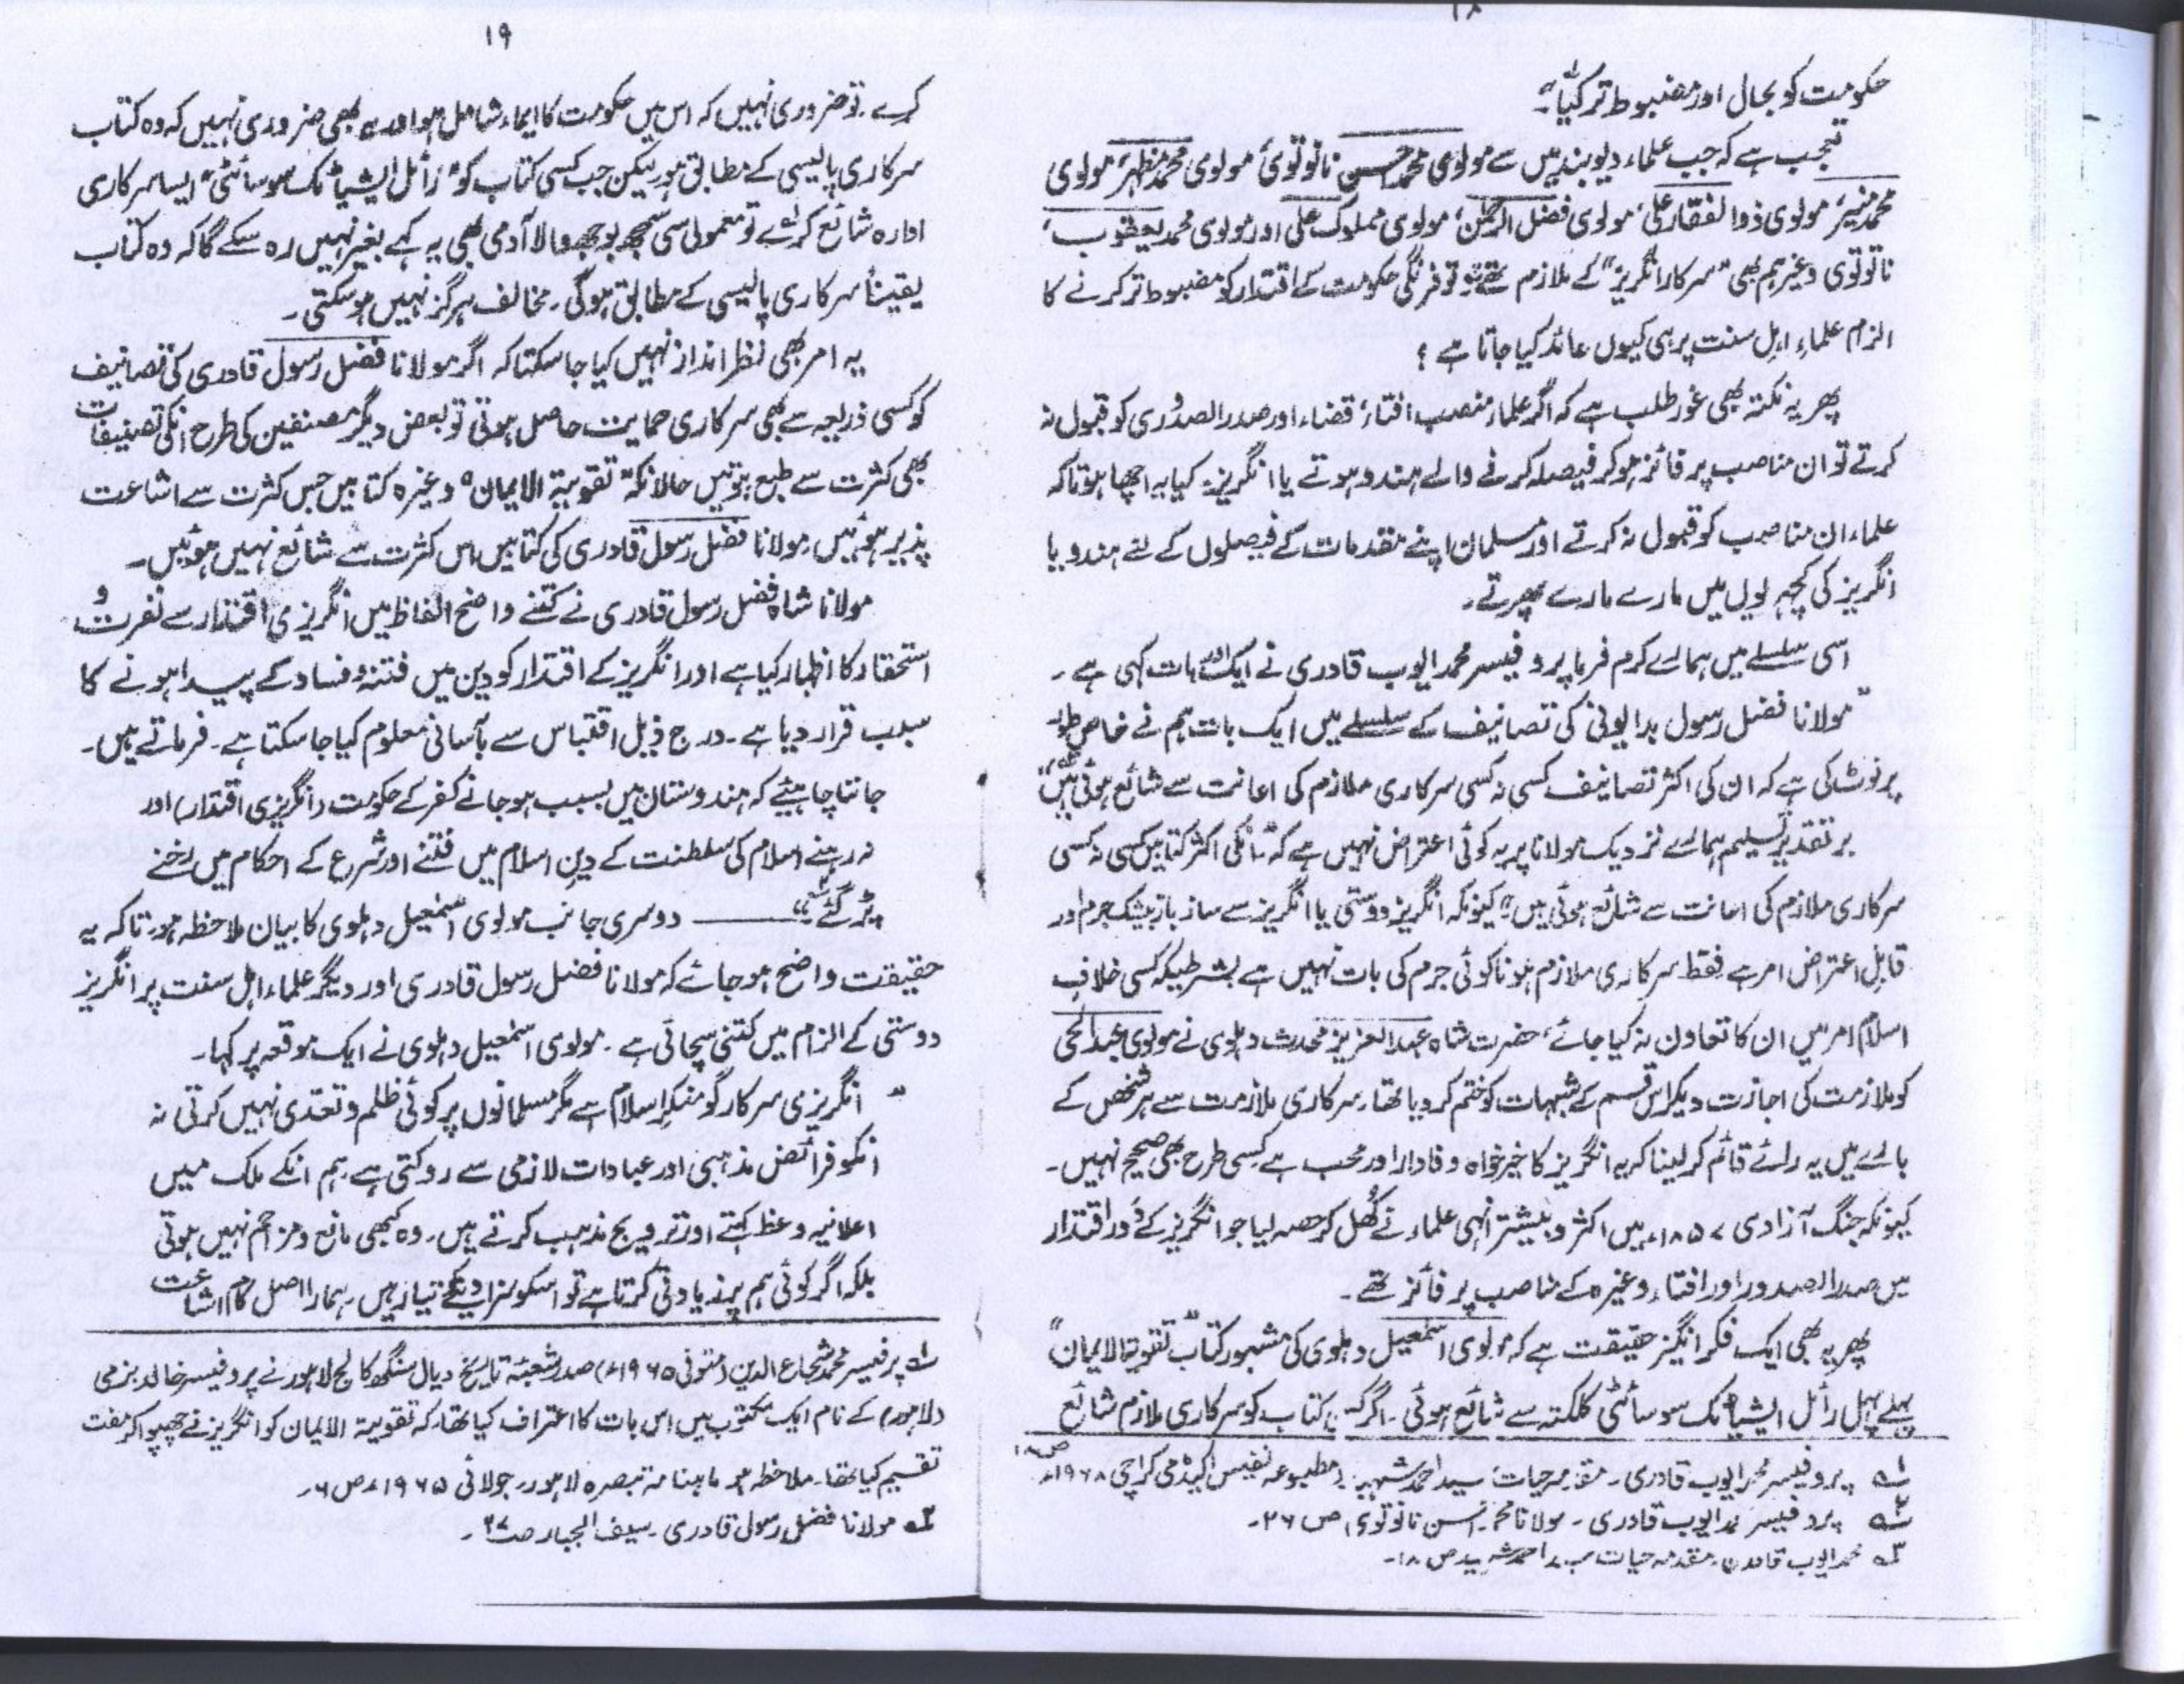 ۱۸
حکومت کو بحال اور مضبوط تر کیا۔"
تعجب ہے کہ جب علماء دیوبند میں سے مولوی محمد احسن نانوتوی، مولوی محمد مظہر، مولوی
محمد منیر، مولوی ذوالفقار علی، مولوی فضل الرحمٰن، مولوی مملوک علی اور مولوی محمد یعقوب،
نانوتوی وغیرہم بھی "سرکار انگریز" کے ملازم تھے تو فرنگی حکومت کے اقتدار کو مضبوط تر کرنے کا
الزام علماءِ اہل سنت پر ہی کیوں عائد کیا جاتا ہے ؟
پھر یہ نکتہ بھی غور طلب ہے کہ اگر علماء منصب افتاء، قضاء اور صدر الصدوری کو قبول نہ
کرتے تو ان مناصب پر فائز ہو کر فیصلہ کرنے والے ہندو ہوتے یا انگریز۔ کیا یہ اچھا ہوتا کہ
علماء ان مناصب کو قبول نہ کرتے اور مسلمان اپنے مقدمات کے فیصلوں کے لئے ہندو یا
انگریز کی کچہریوں میں مارے مارے پھرتے۔
اسی سلسلے میں ہمارے کرم فرما پروفیسر محمد ایوب قادری نے ایک اور بات کہی ہے۔
"مولانا فضل رسول بدایونی کی تصانیف کے سلسلے میں ایک بات ہم نے خاص طور
پر نوٹ کی ہے کہ ان کی اکثر تصانیف کسی نہ کسی سرکاری ملازم کی اعانت سے شائع ہوئی ہیں"
بر تقدیر تسلیم ہمارے نزدیک مولانا پر یہ کوئی اعتراض نہیں ہے کہ "انکی اکثر کتابیں کسی نہ کسی
سرکاری ملازم کی اعانت سے شائع ہوئی ہیں" کیونکہ انگریز دوستی یا انگریز سے ساز باز بیشک جرم اور
قابل اعتراض امر ہے فقط سرکاری ملازم ہونا کوئی جرم کی بات نہیں ہے بشرطیکہ کسی خلاف
اسلام امر میں ان کا تعاون نہ کیا جائے، حضرت شاہ عبدالعزیز محدث دہلوی نے مولوی عبدالحی
کو ملازمت کی اجازت دیکر اس قسم کے شبہات کو ختم کر دیا تھا، سرکاری ملازمت سے ہر شخص کے
بارے میں یہ رائے قائم کر لینا کہ یہ انگریز کا خیر خواہ وفادار اور محب ہے کسی طرح بھی صحیح نہیں۔
کیونکہ جنگ آزادی ۱۸۵۷ء میں اکثر و بیشتر انہی علماء نے کُھل کر حصہ لیا جو انگریز کے دور اقتدار
میں صدر الصدور اور افتاء وغیرہ کے مناصب پر فائز تھے۔
پھر یہ بھی ایک فکر انگیز حقیقت ہے کہ مولوی اسمٰعیل دہلوی کی مشہور کتاب "تقویۃ الایمان"
پہلے پہل رائل ایشیاٹک سوسائٹی کلکتہ سے شائع ہوئی۔ اگر کسی کتاب کو سرکاری ملازم شائع
۱؎ پروفیسر محمد ایوب قادری۔ مقدمہ حیات سید احمد شہید، مطبوعہ نفیس اکیڈمی کراچی ۱۹۶۸ء ص۱۸
۲؎ پروفیسر محمد ایوب قادری۔ مولانا محمد احسن نانوتوی ص ۲۶۔
۳؎ محمد ایوب قادری، مقدمہ حیات سید احمد شہید ص ۱۸۔
۱۹
کرے تو ضروری نہیں کہ اس میں حکومت کا ایماء شامل ہو اور یہ بھی ضروری نہیں کہ وہ کتاب
سرکاری پالیسی کے مطابق ہو لیکن جب کسی کتاب کو "رائل ایشیاٹک سوسائٹی" ایسا سرکاری
ادارہ شائع کرائے تو معمولی سی سمجھ بوجھ والا آدمی بھی یہ کہے بغیر نہیں رہ سکے گا کہ وہ کتاب
یقیناً سرکاری پالیسی کے مطابق ہو گی۔ مخالف ہرگز نہیں ہو سکتی۔
یہ امر بھی نظر انداز نہیں کیا جا سکتا کہ اگر مولانا فضل رسول قادری کی تصانیف
کو کسی ذریعہ سے بھی سرکاری حمایت حاصل ہوتی تو بعض دیگر مصنفین کی طرح انکی تصنیفات
بھی کثرت سے طبع ہوتیں حالانکہ "تقویۃ الایمان" وغیرہ کتابیں جس کثرت سے اشاعت
پذیر ہوئیں، مولانا فضل رسول قادری کی کتابیں اس کثرت سے شائع نہیں ہوئیں۔
مولانا شاہ فضل رسول قادری نے کتنے واضح الفاظ میں انگریزی اقتدار سے نفرت و
استحقار کا اظہار کیا ہے اور انگریز کے اقتدار کو دین میں فتنہ و فساد کے پیدا ہونے کا
سبب قرار دیا ہے۔ درج ذیل اقتباس سے بآسانی معلوم کیا جا سکتا ہے۔ فرماتے ہیں۔
جاننا چاہیئے کہ ہندوستان میں بسبب ہو جانے کفر کے حکومت (انگریزی اقتدار) اور
نہ رہنے اسلام کی سلطنت کے دین اسلام میں فتنے اور شرع کے احکام میں رخنے
پڑ گئے" ـــــ دوسری جانب مولوی اسمٰعیل دہلوی کا بیان ملاحظہ ہو تاکہ یہ
حقیقت واضح ہو جائے کہ مولانا فضل رسول قادری اور دیگر علماء اہل سنت پر انگریز
دوستی کے الزام میں کتنی سچائی ہے۔ مولوی اسمٰعیل دہلوی نے ایک موقعہ پر کہا۔
"انگریزی سرکار گو منکر اسلام ہے مگر مسلمانوں پر کوئی ظلم و تعدی نہیں کرتی نہ
انکو فرائض مذہبی اور عبادات لازمی سے روکتی ہے ہم انکے ملک میں
اعلانیہ وعظ کہتے اور ترویج مذہب کرتے ہیں۔ وہ کبھی مانع و مزاحم نہیں ہوتی
بلکہ اگر کوئی ہم پر زیادتی کرتا ہے تو اسکو سزا دینے کو تیار ہیں، ہمارا اصل کام اشاعت
۱؎ پرفیسر محمد شجاع الدین (متوفی ۱۹۶۵ء) صدر شعبۂ تاریخ دیال سنگھ کالج لاہور نے پروفیسر خالد بزمی
(لاہور) کے نام ایک مکتوب میں اس بات کا اعتراف کیا تھا کہ تقویۃ الایمان کو انگریز نے چھپوا کر مفت
تقسیم کیا تھا۔ ملاحظہ ہو ماہنامہ تبصرہ لاہور، جولائی ۱۹۶۵ء ص ۶۔
۲؎ مولانا فضل رسول قادری۔ سیف الجبار ص